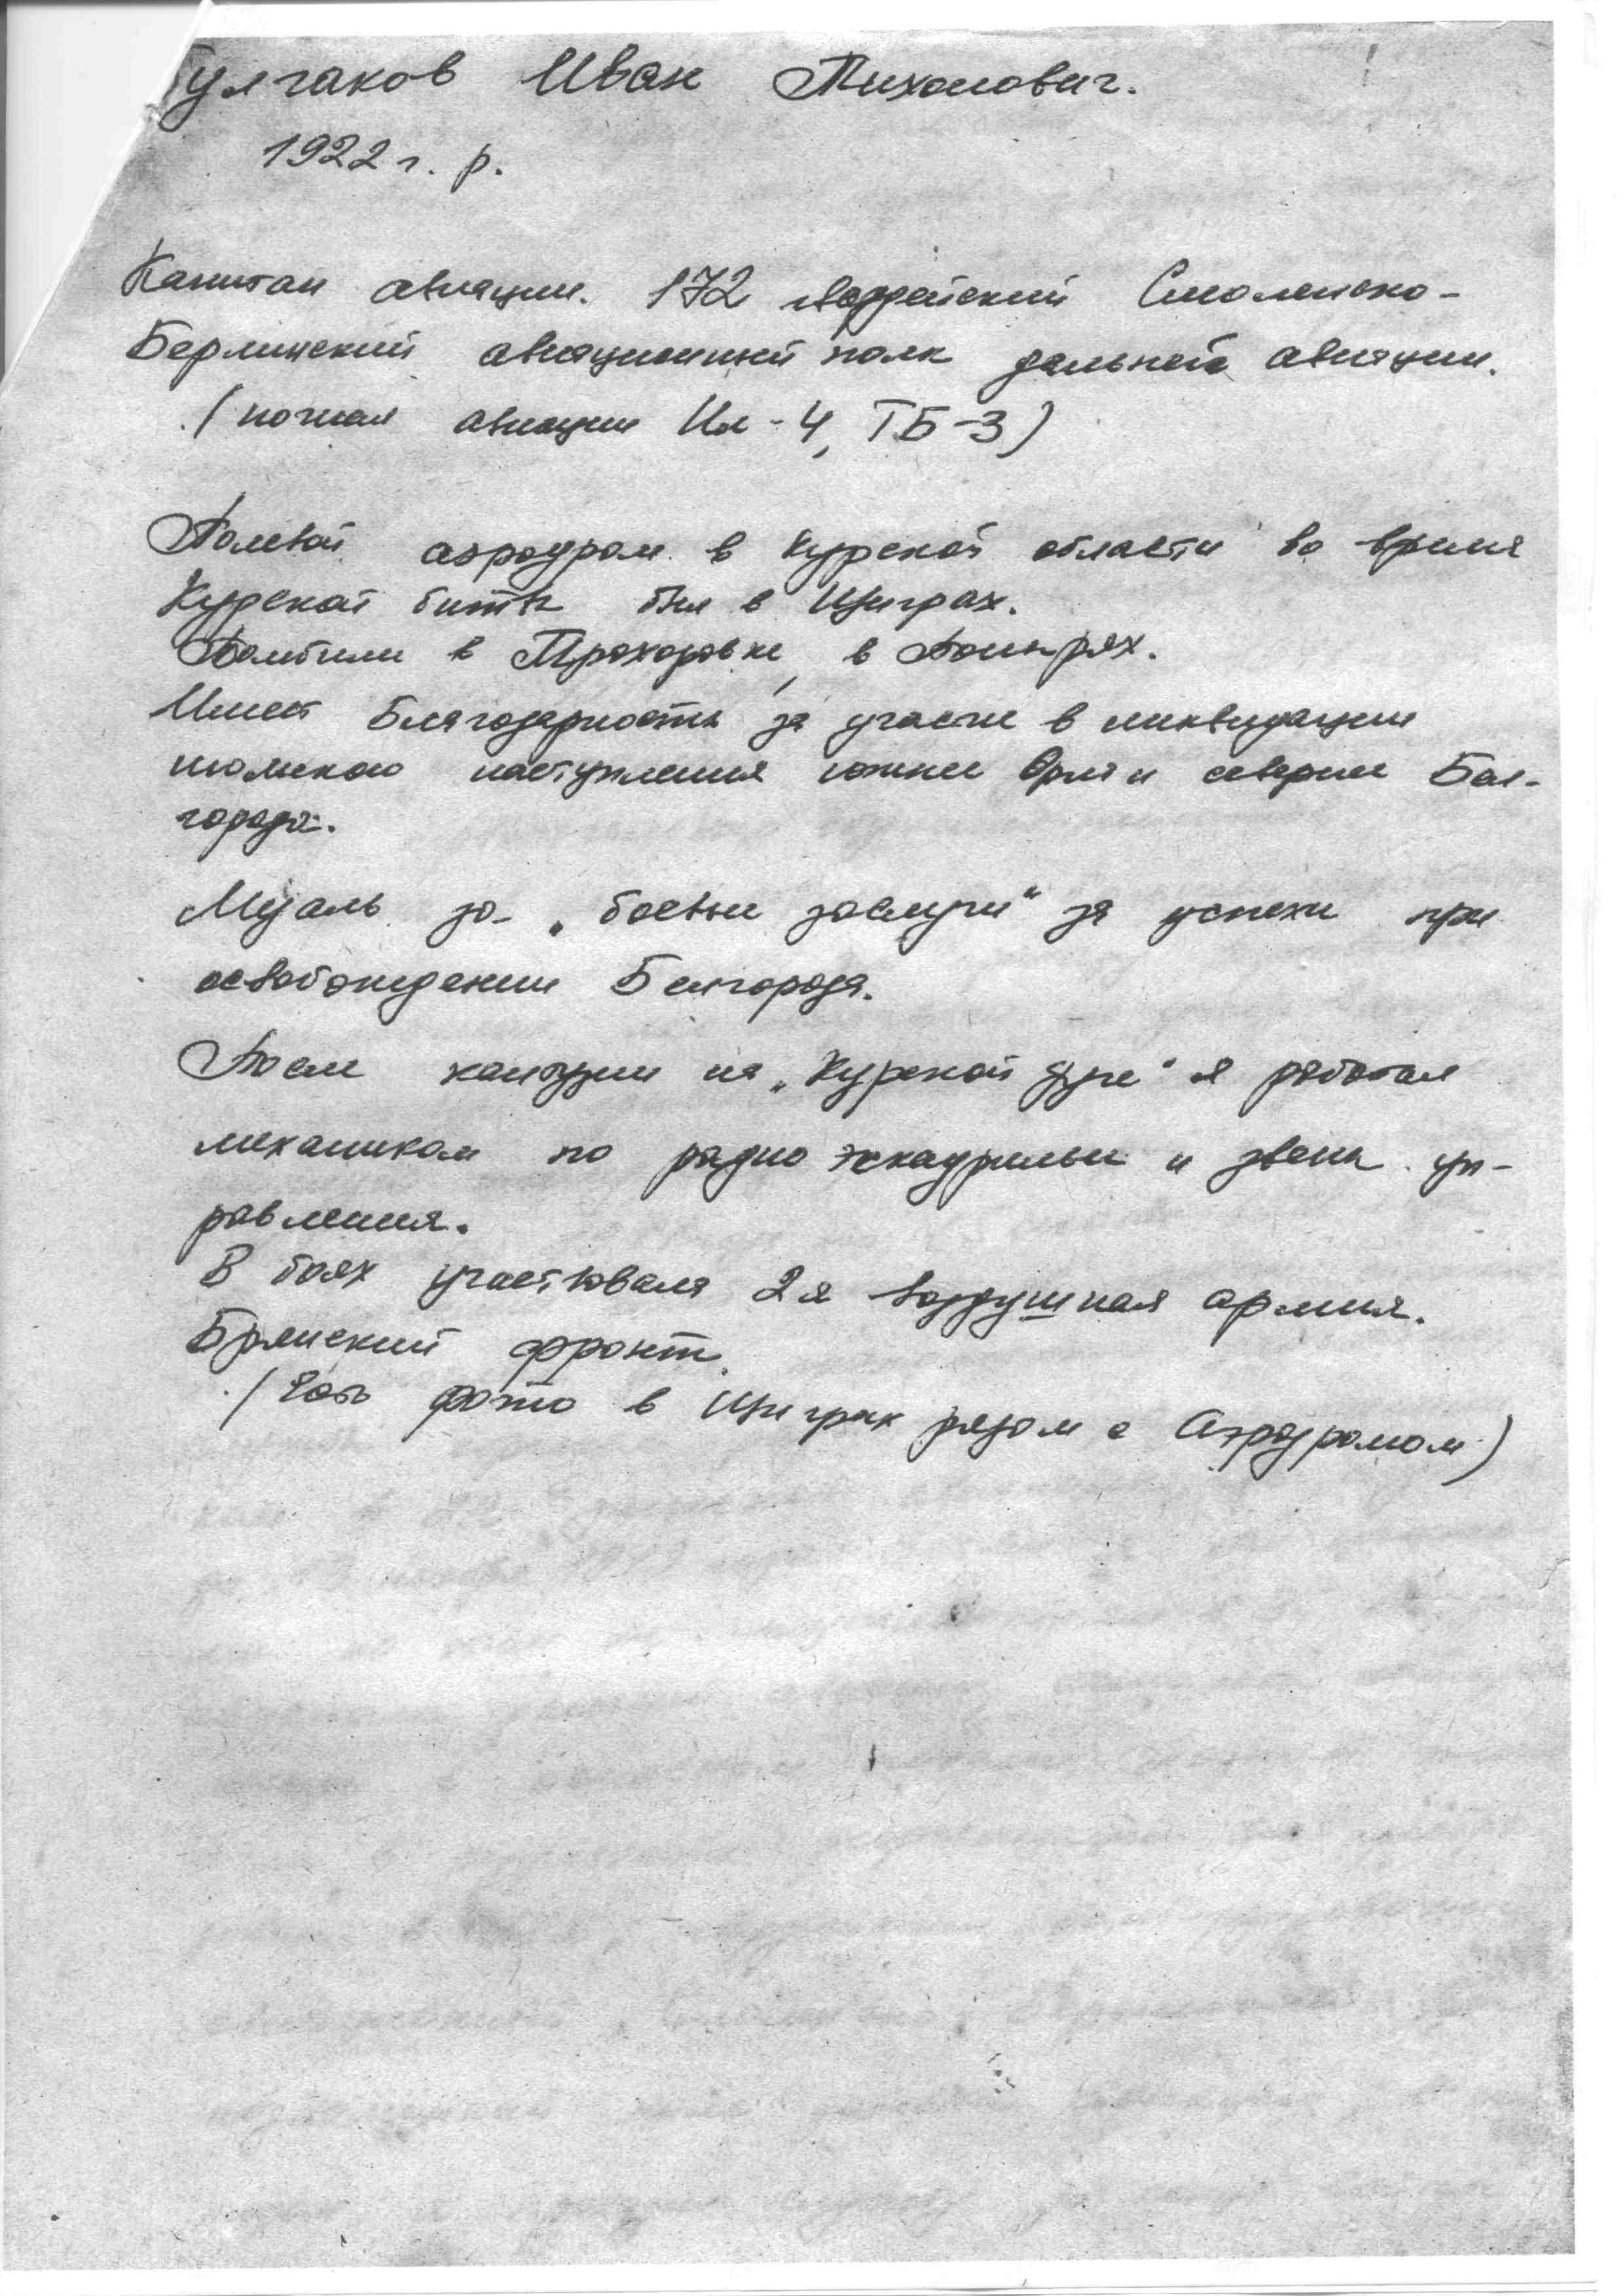 Булгаков Иван Тихонович.
1922 г. р.
Капитан авиации. 172 гвардейский Смоленско-
Берлинский авиационный полк дальней авиации.
(ночная авиация Ил-4, ТБ-3)
Полевой аэродром в Курской области во время
Курской битвы был в Щиграх.
Бомбили в Прохоровке, в Понырях.
Имеет благодарность за участие в ликвидации
немецкого наступления южнее Орла и севернее Бел-
города.
Медаль за „боевые заслуги“ за успехи при
освобождении Белгорода.
После контузии на „Курской дуге“ я работал
механиком по радио эскадрильи и звена уп-
равления.
В боях участвовала 2я воздушная армия.
Брянский фронт.
(Есть фото в Щиграх рядом с Аэродромом)